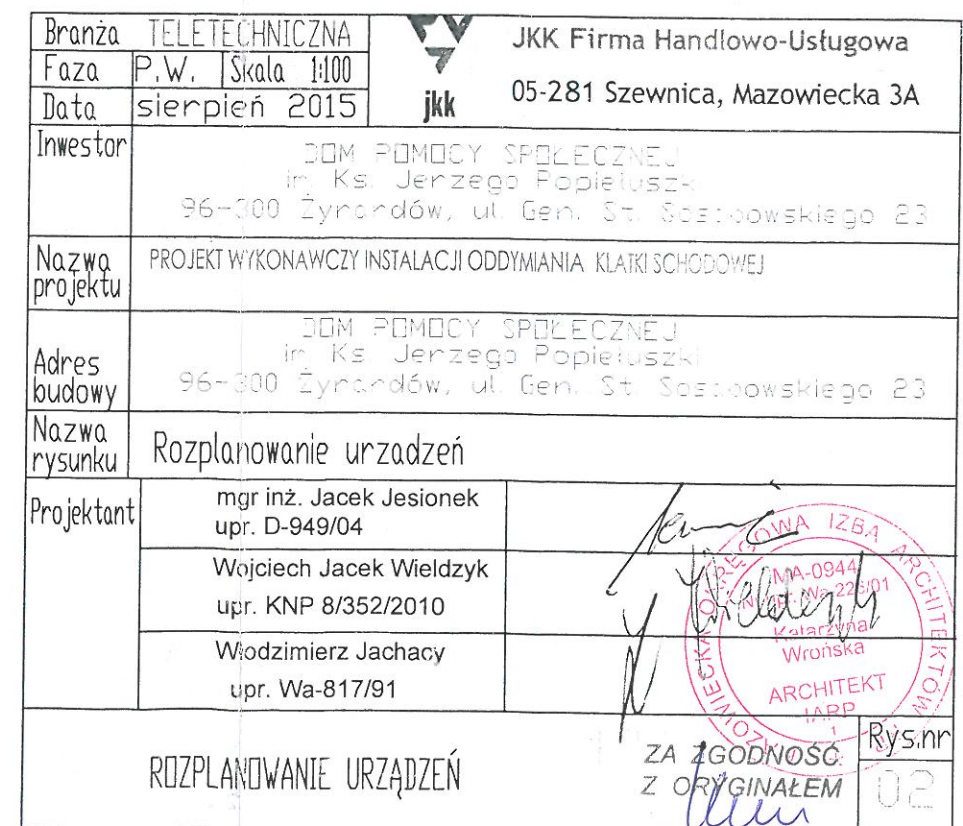 Branża TELETECHNICZNA
Faza P.W. Skala 1:100
Data sierpień 2015
jkk
JKK Firma Handlowo-Usługowa
05-281 Szewnica, Mazowiecka 3A
Inwestor
DOM POMOCY SPOŁECZNEJ
Ks. Jerzego
96-300 Żyrardów, ul. Gen. St. 23
Nazwa projektu
PROJEKT WYKONAWCZY INSTALACJI ODDYMIANIA KLATKI SCHODOWEJ
Adres budowy
DOM POMOCY SPOŁECZNEJ
Ks. Jerzego
96-300 Żyrardów, ul. Gen. St. 23
Nazwa rysunku
Rozplanowanie urzadzeń
Projektant
mgr inż. Jacek Jesionek
upr. D-949/04
Wojciech Jacek Wieldzyk
upr. KNP 8/352/2010
Włodzimierz Jachacy
upr. Wa-817/91
IZBA ARCHITEKTÓW
MA-0944
Katarzyna
Wrońska
ARCHITEKT
IARP
ROZPLANOWANIE URZĄDZEŃ
ZA ZGODNOŚĆ
Z ORYGINAŁEM
Rys.nr
02